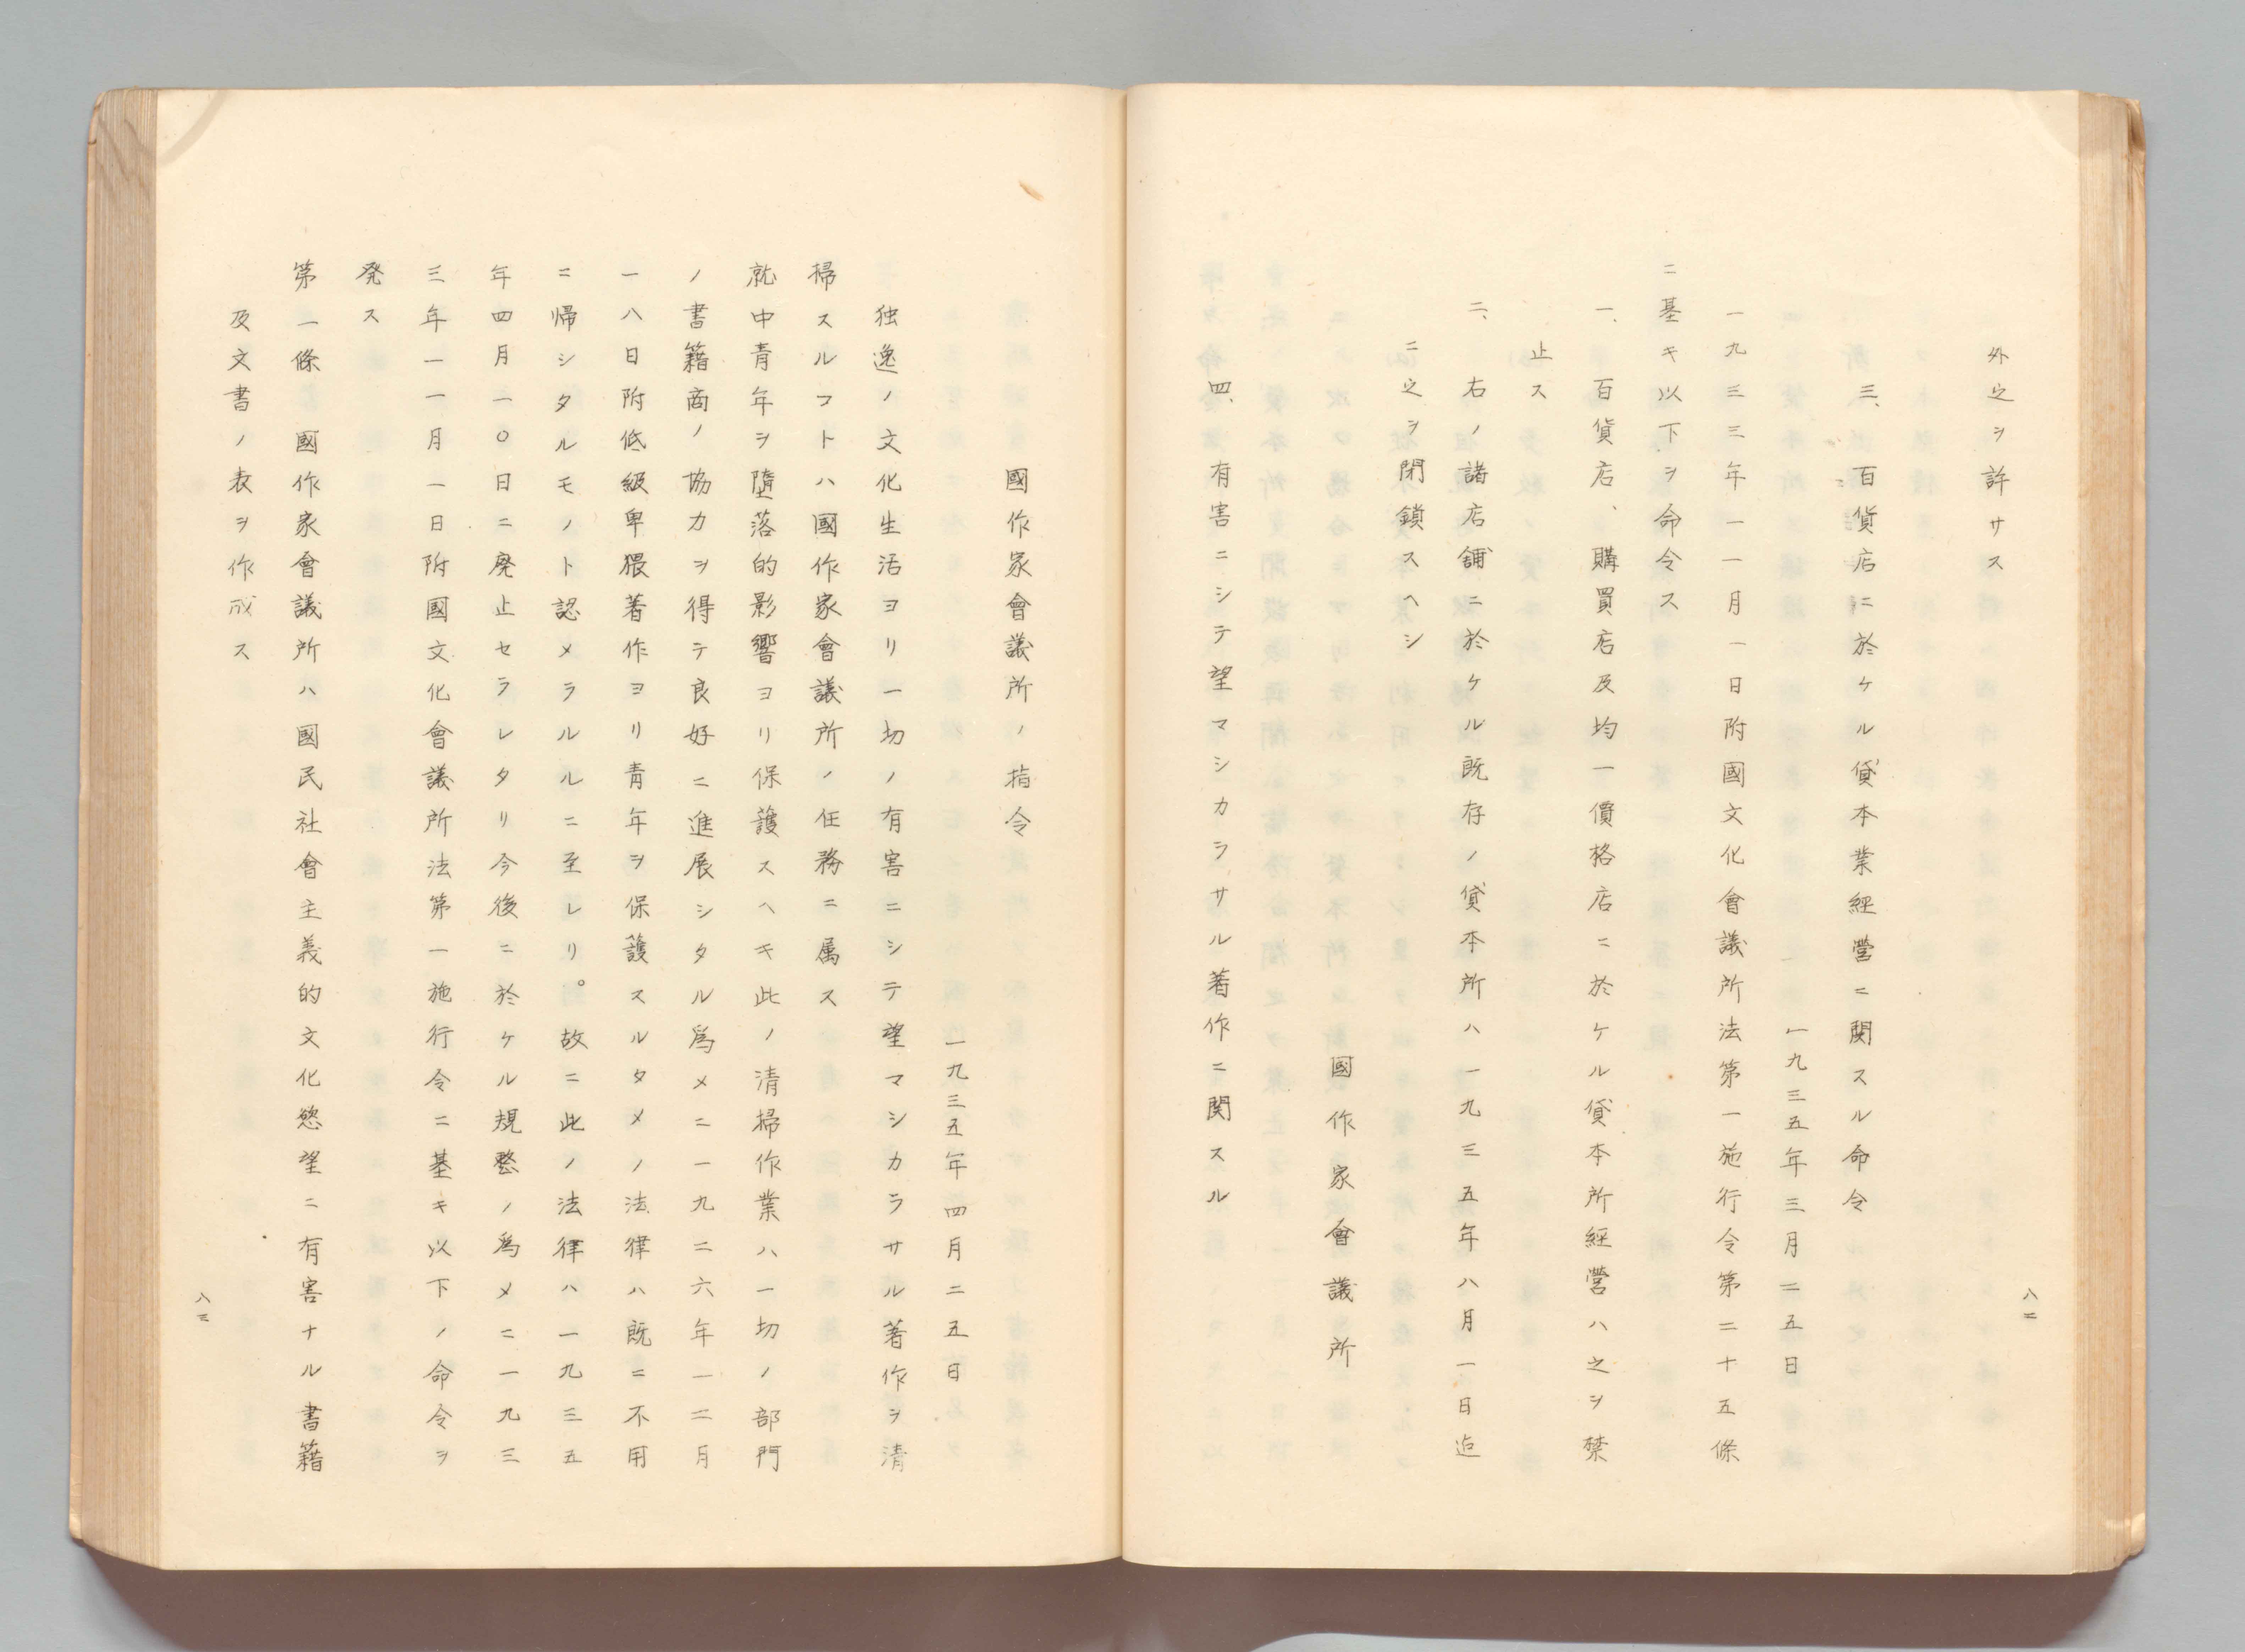 外之ヲ許サス
三、百貨店ニ於ケル貸本業経営ニ関スル命令
一九三五年三月二五日
一九三三年一一月一日附國文化會議所法第一施行令第二十五條
ニ基キ以下ヲ命令ス
一、百貨店、購買店及均一價格店ニ於ケル貸本所経営ハ之ヲ禁
止ス
二、右ノ諸店舗ニ於ケル既存ノ貸本所ハ一九三五年八月一日迠
ニ之ヲ閉鎖スヘシ
國作家會議所
四、有害ニシテ望マシカラサル著作ニ関スル
八二
國作家會議所ノ指令
一九三五年四月二五日
独逸ノ文化生活ヨリ一切ノ有害ニシテ望マシカラサル著作ヲ清
掃スルコトハ國作家會議所ノ任務ニ属ス
就中青年ヲ墮落的影響ヨリ保護スヘキ此ノ清掃作業ハ一切ノ部門
ノ書籍商ノ協力ヲ得テ良好ニ進展シタル爲メニ一九二六年一二月
一八日附低級卑猥著作ヨリ青年ヲ保護スルタメノ法律ハ既ニ不用
ニ帰シタルモノト認メラルルニ至レリ。故ニ此ノ法律ハ一九三五
年四月一〇日ニ廃止セラレタリ今後ニ於ケル規整ノ爲メニ一九三
三年一一月一日附國文化會議所法第一施行令ニ基キ以下ノ命令ヲ
発ス
第一條 國作家會議所ハ國民社會主義的文化慾望ニ有害ナル書籍
及文書ノ表ヲ作成ス
八三